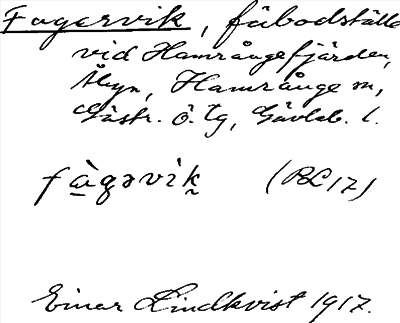 Fagervik, fäbodställe
vid Hamrångefjärden,
Åbyn, Hamrånge sn,
Gästr. ö. tg, Gävleb. l.
fàgəvìk (RL 17)
Einar Lindkvist 1917.